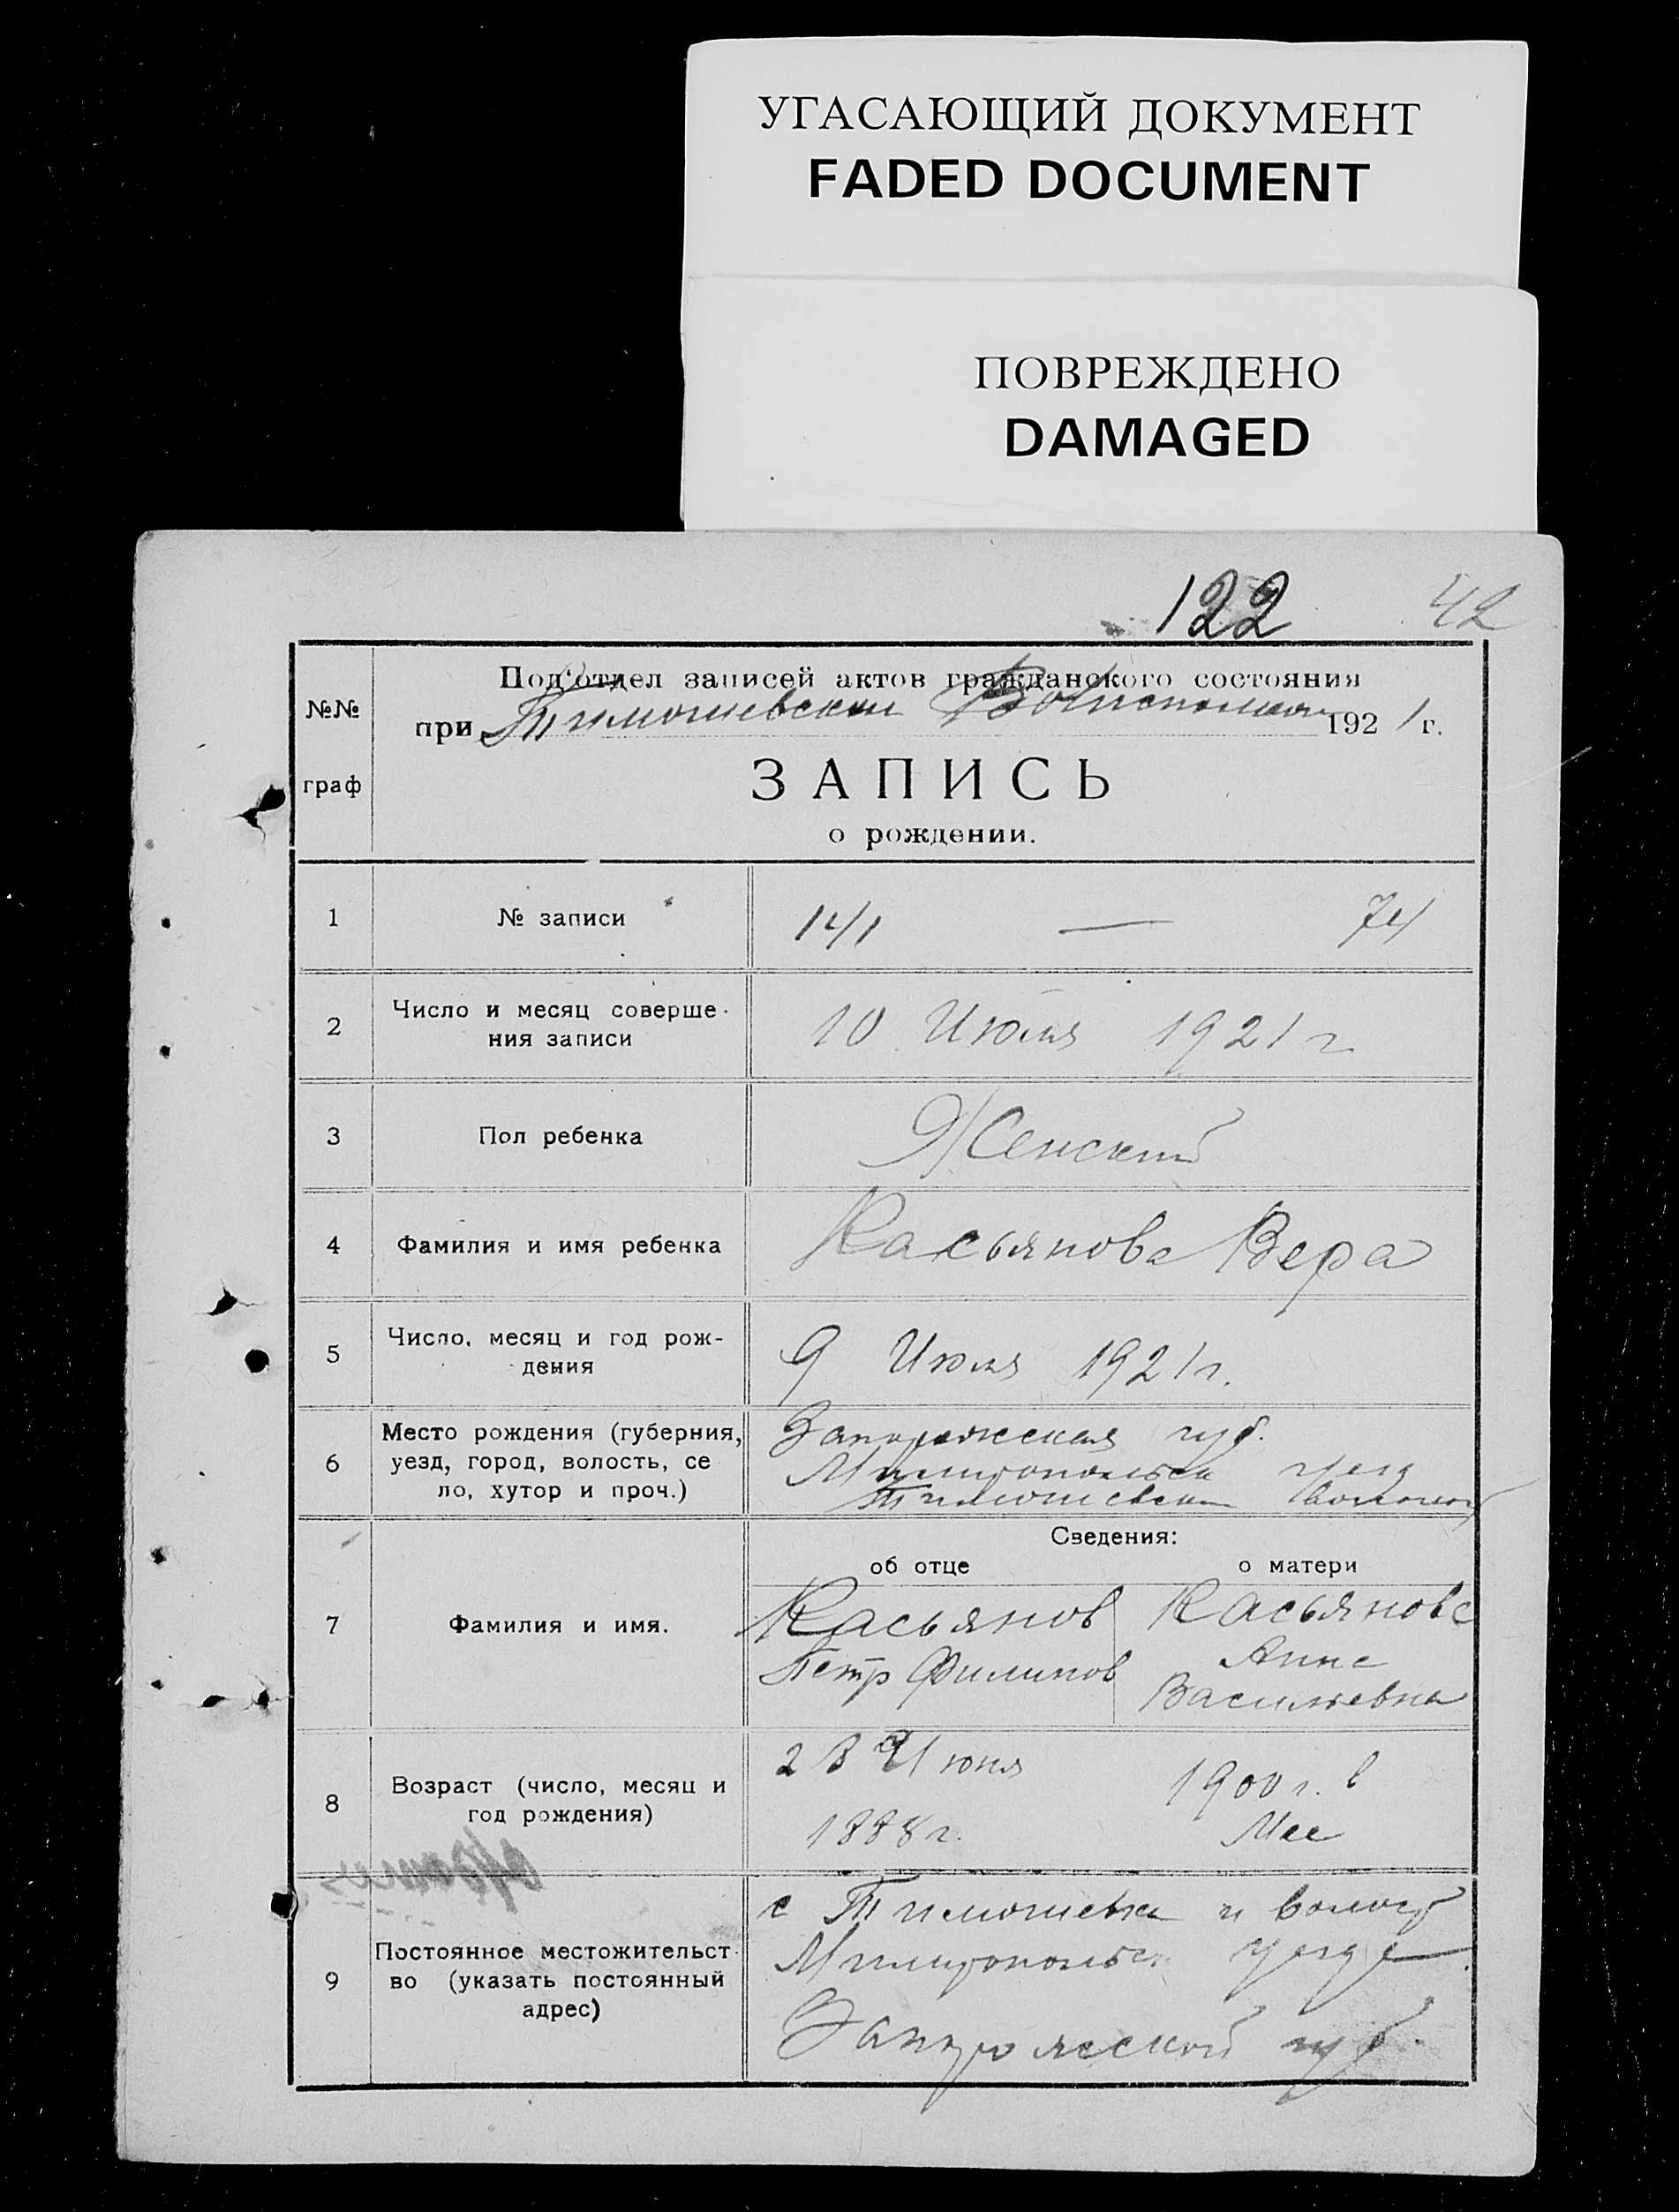 УГАСАЮЩИЙ ДОКУМЕНТ
FADED DOCUMENT
ПОВРЕЖДЕНО
DAMAGED
122 42
№№ граф
Под‘отдел записей актов гражданского состояния
при Тимошевском Волисполком 1921 г.
ЗАПИСЬ
о рождении.
1 № записи 141 — 74
2 Число и месяц соверше-
ния записи 10 Июля 1921 г
3 Пол ребенка Женский
4 Фамилия и имя ребенка Касьянова Вера
5 Число, месяц и год рож-
дения 9 Июля 1921 г.
6 Место рождения (губерния, Запорожская губ.
уезд, город, волость, се Мелитопольск уезд
ло, хутор и проч.) Тимошевск волость
Сведения:
об отце о матери
7 Фамилия и имя. Касьянов Касьянова
Петр Филипов Анна
Васильевна
8 Возраст (число, месяц и
год рождения) Июня 1888 г. 1900 г. в Мае
9 Постоянное местожительст-
во (указать постоянный
адрес)
с Тимошевка и волост
Мелитопольск уезда
Запорожской губ.